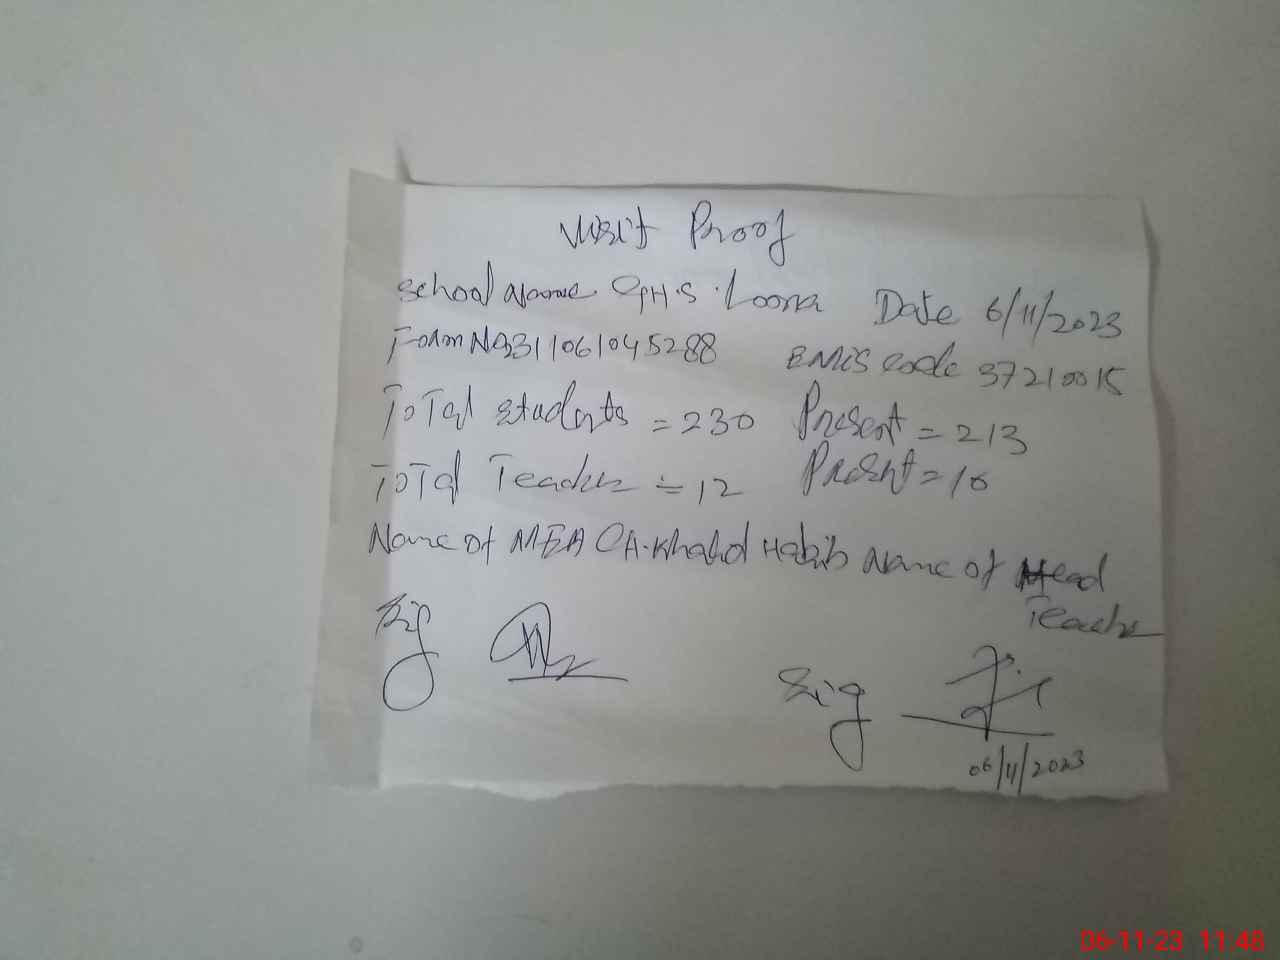 Visit Proof
School Name GHS Loona Date 6/11/2023
Form No 2311061045288 EMIS code 37210015
Total students = 230 Present = 213
Total Teacher = 12 Present = 10
Name of MEA Ch. Khalid Habib Name of Head
Teacher
Sig
Sig
06/11/2023
06-11-23 11:48